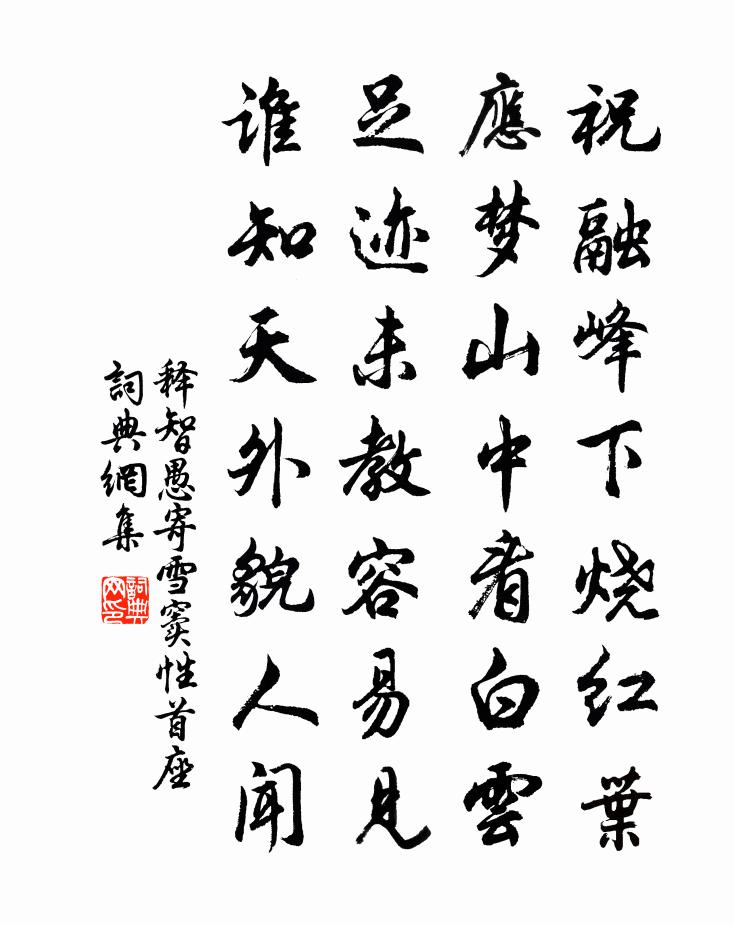 祝融峰下烧红葉
應梦山中看白雲
足迹未教容易見
谁知天外貌人闻
释智愚寄雪窦性首座
詞典網集
詞典网印